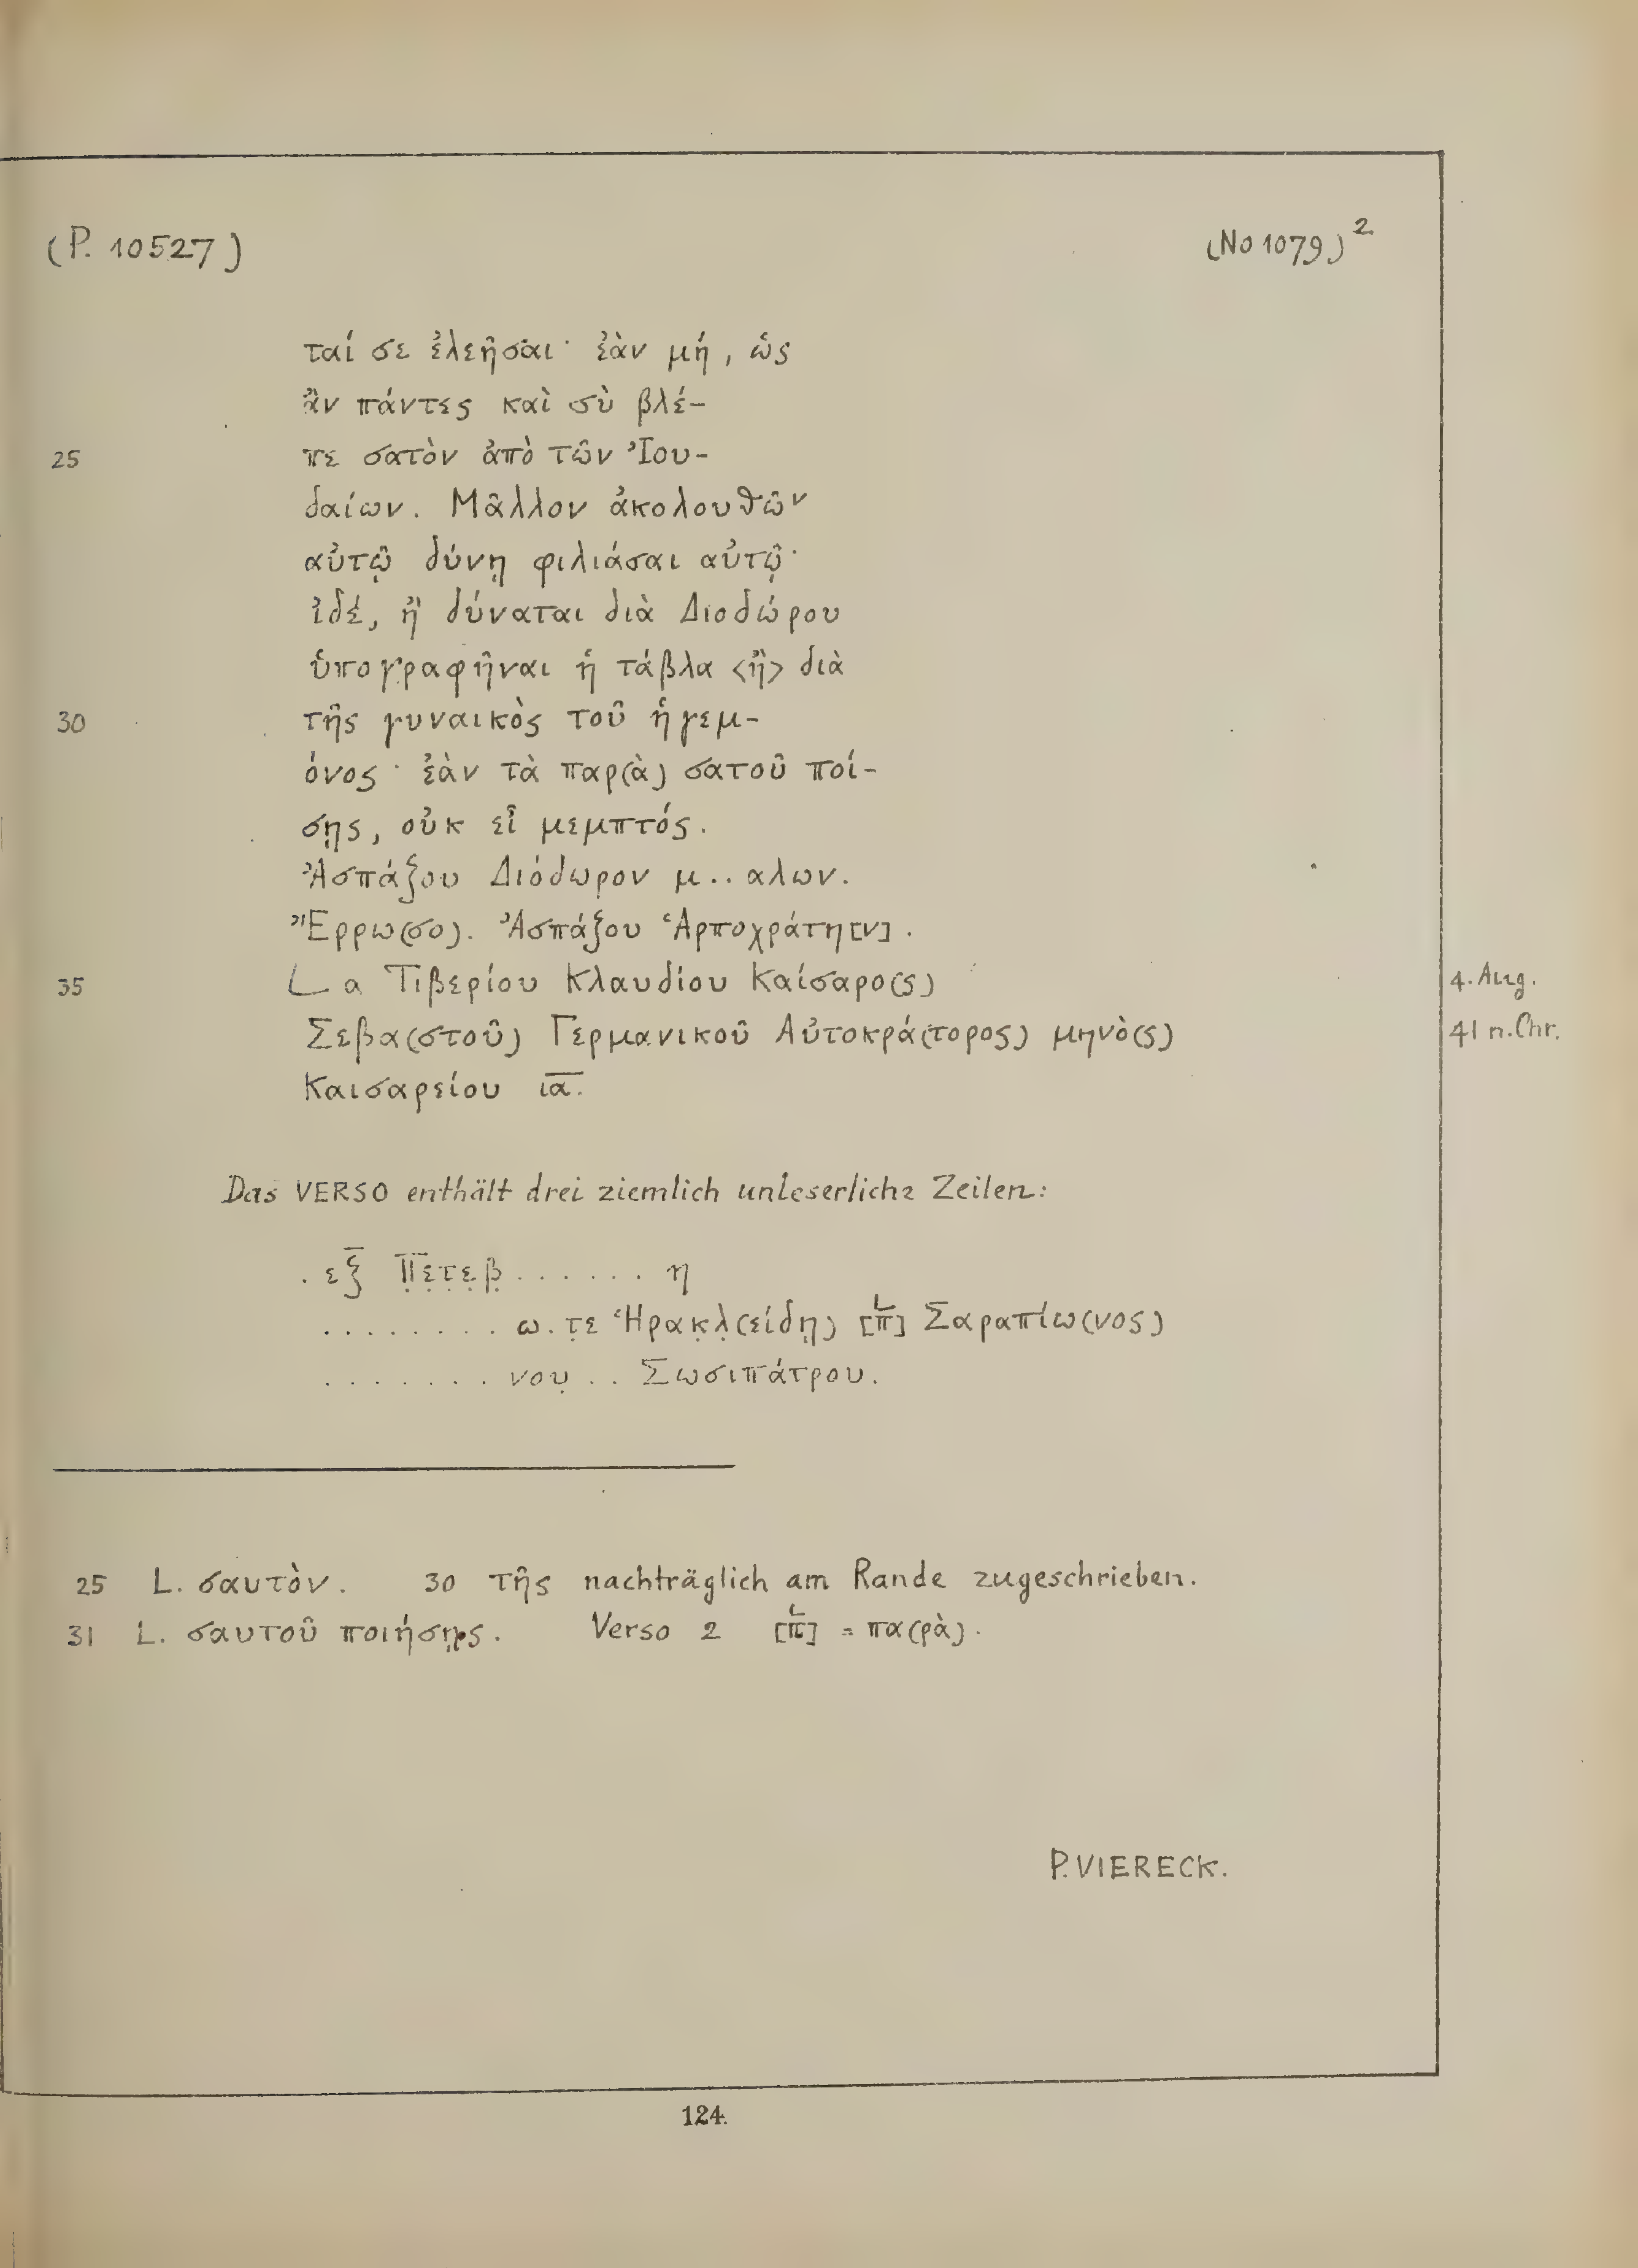 (P. 10527) (No 1079)²
ταί σε ἐλεῆσαι· ἐὰν μή, ὡς
ἂν πάντες καὶ σὺ βλέ-
25 πε σατὸν ἀπὸ τῶν Ἰου-
δαίων. Μᾶλλον ἀκολουθῶν
αὐτῷ δύνῃ φιλιάσαι αὐτῷ·
ἰδέ, ἢ δύναται διὰ Διοδώρου
ὑπογραφῆναι ἡ τάβλα <ἢ> διὰ
30 τῆς γυναικὸς τοῦ ἡγεμ-
όνος· ἐὰν τὰ παρ(ὰ) σατοῦ ποί-
σῃς, οὐκ εἶ μεμπτός.
Ἀσπάζου Διόδωρον μ..αλων.
Ἔρρω(σο). Ἀσπάζου Ἁρποχράτη[ν].
35 L α Τιβερίου Κλαυδίου Καίσαρο(ς) 4. Aug.
Σεβα(στοῦ) Γερμανικοῦ Αὐτοκρά(τορος) μηνὸ(ς) 41 n. Chr.
Καισαρείου ι̅α̅.
Das VERSO enthält drei ziemlich unleserliche Zeilen:
. εξ̅ Π̣̅ε̣τ̣ε̣β̣ . . . . . . η
. . . . . . . . ω . τ̣ε Ἡρακ̣λ̣(είδῃ) [π̅L] Σαραπίω(νος)
. . . . . . . νου̣ . . Σωσιπάτρου.
25 L. σαυτὸν. 30 τῆς nachträglich am Rande zugeschrieben.
31 L. σαυτοῦ ποιήσῃς. Verso 2 [π̅L] = πα(ρὰ).
P. VIERECK.
124.